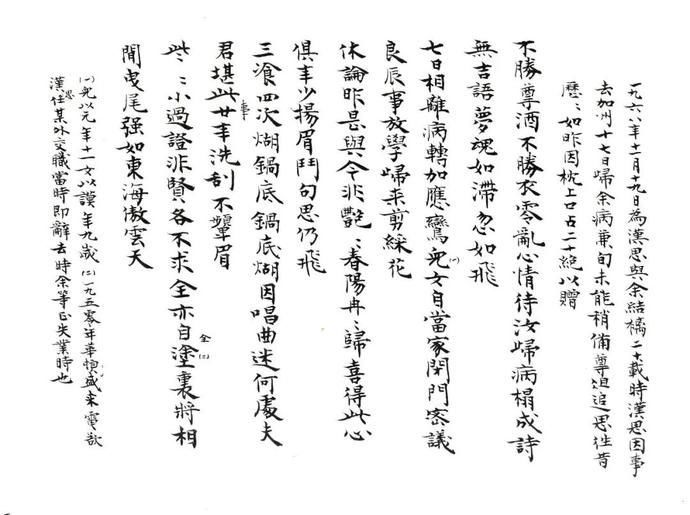 一九六八年十一月十九日為漢思與余結縭二十載時漢思因事
去加州十七日歸余病兼旬未能稍備尊俎追思往昔
歷〻如昨因枕上口占二十絕以贈
不勝尊酒不勝衣零亂心情待汝歸病榻成詩
無吉語夢魂如滯忽如飛
七日相離病轉加應兒(一)女自當家閉門密議
良辰事放學歸来剪綵花
休論昨是與今非艷〻春陽冉〻歸喜得此心
俱年少揚眉鬥句思仍飛
三飡四次煳鍋底鍋底煳因唱曲迷何處夫
君堪此事廿年洗刮不顰眉
些〻小過證非賢各不求全亦自全(二)塗裏將相
閒曳尾强如東海傲雲天
(一)兒以元年十一女以謨年九歲(二)一九五零年華來電欲
漢思任某外交職當時即辭去時余等正失業時也